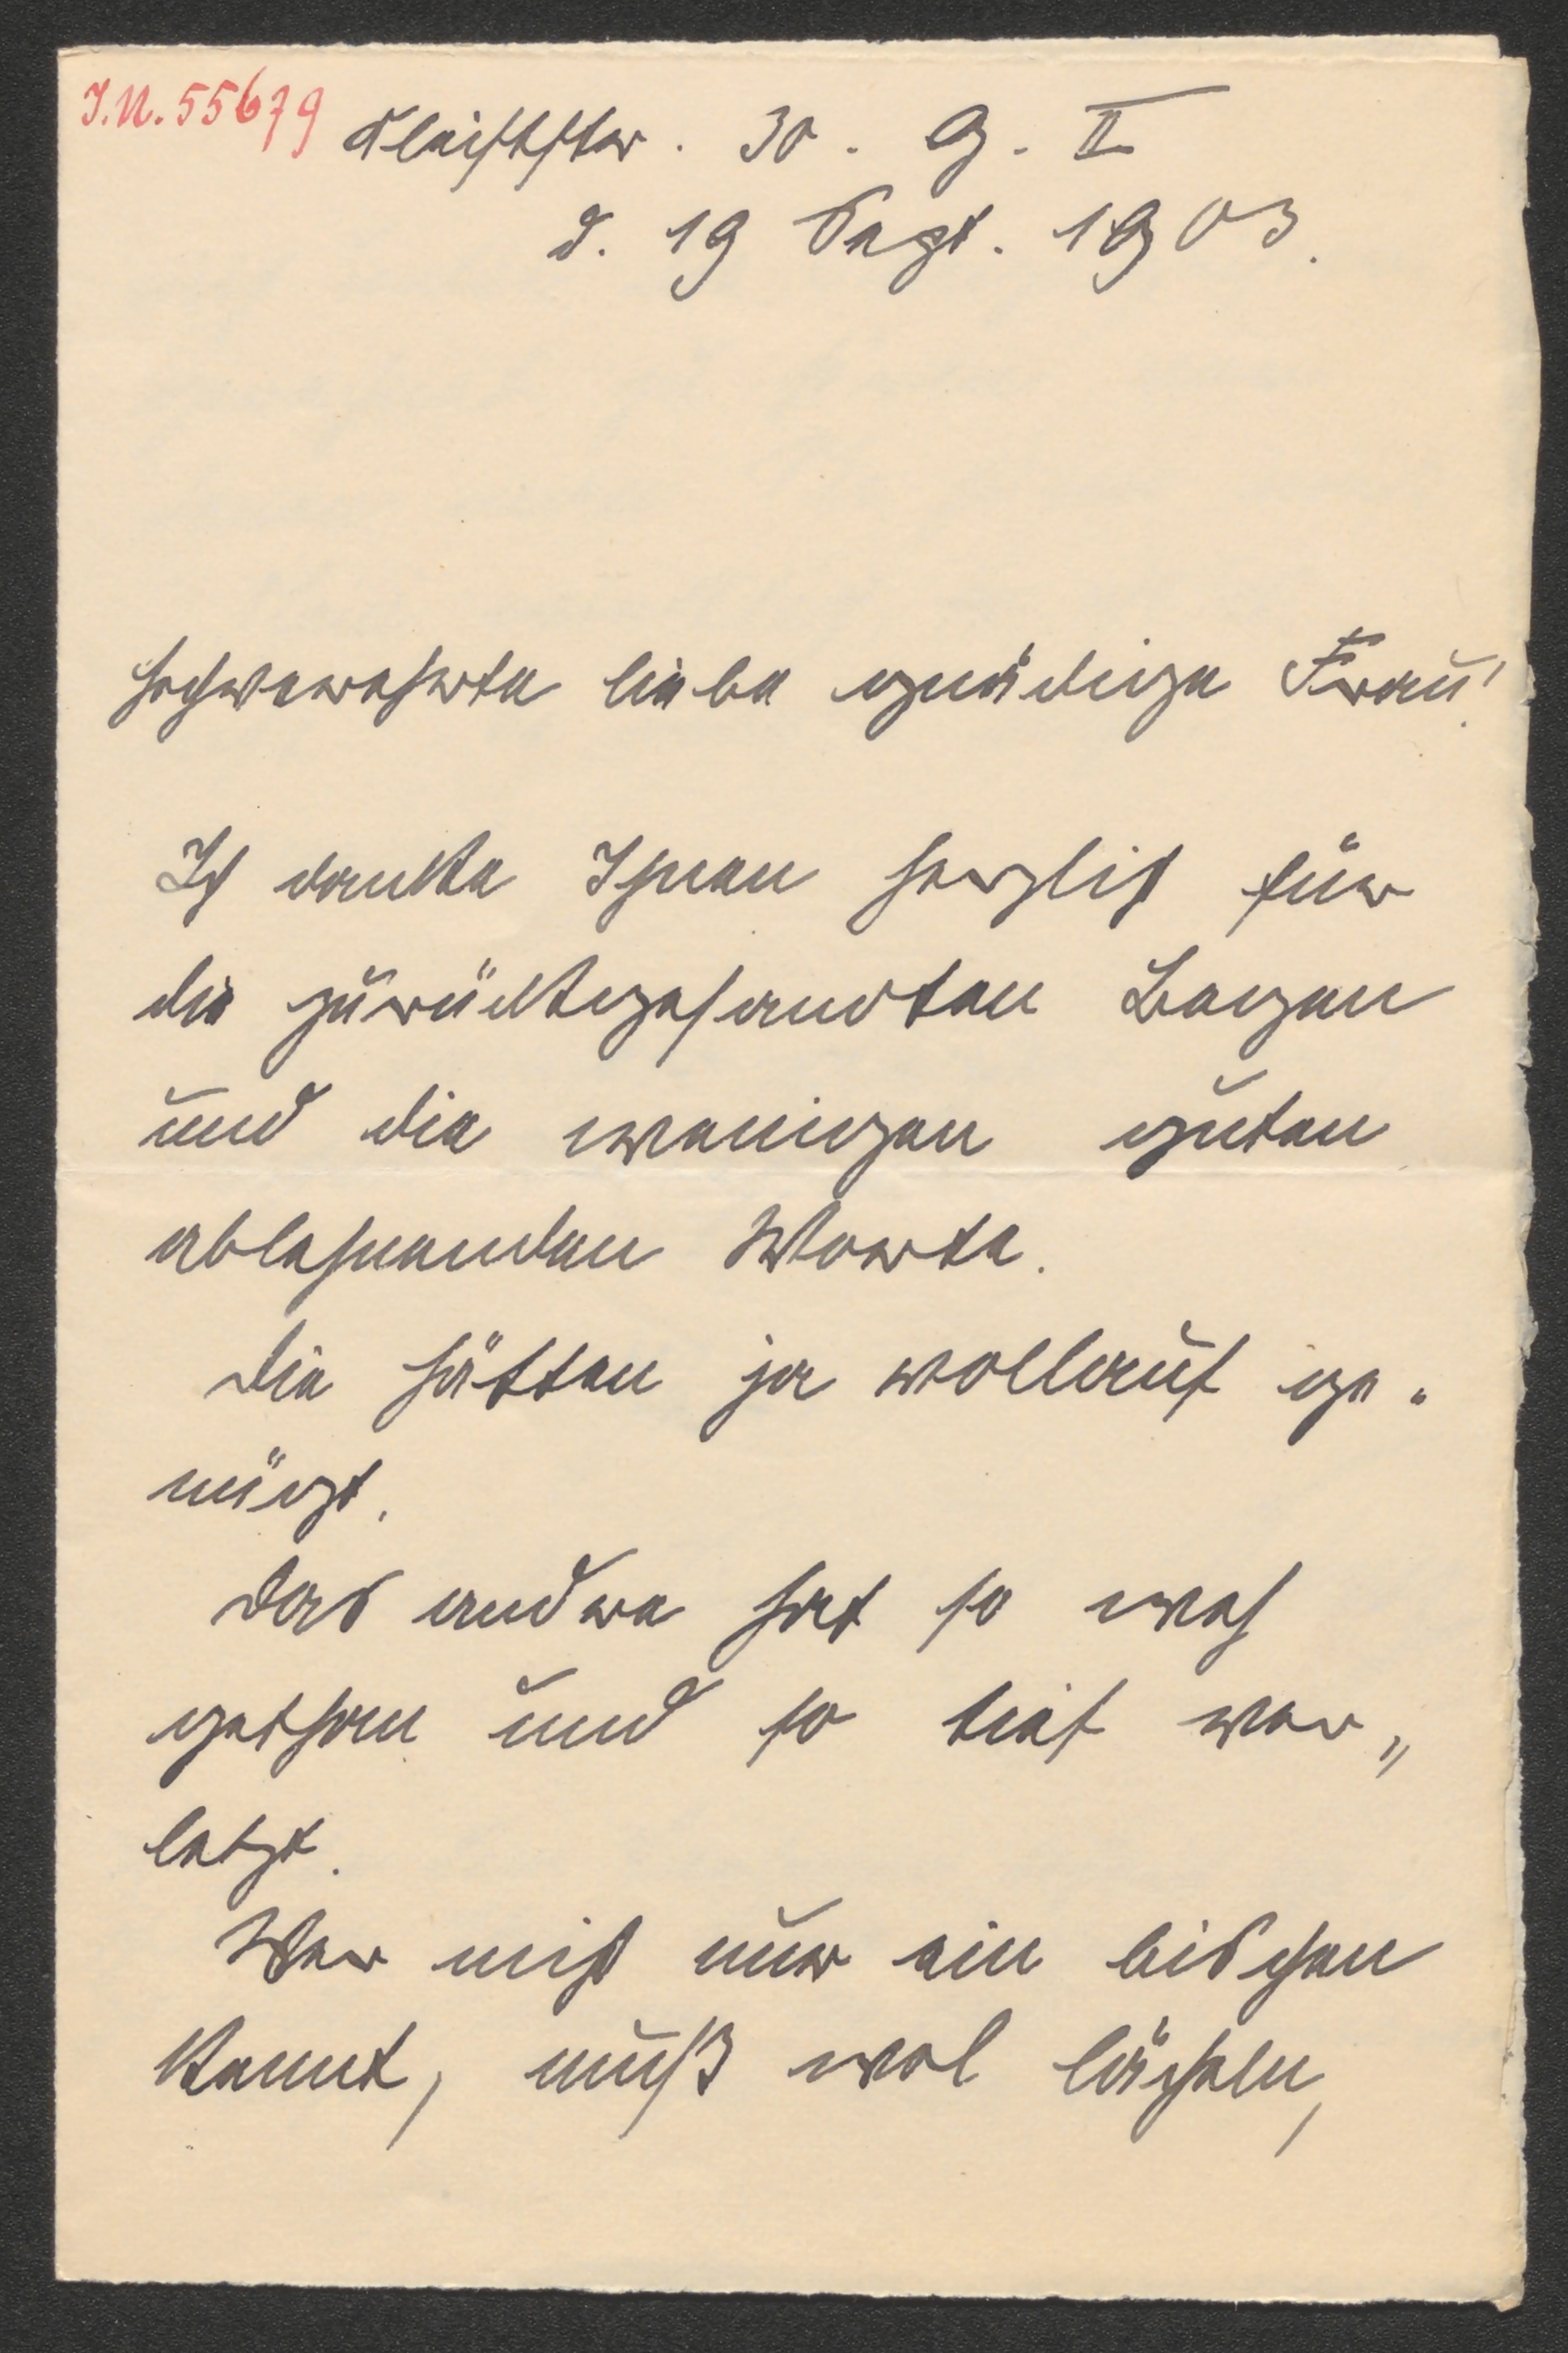 J.N. 55679
Kleiststr. 30. G. II
d. 19 Sept. 1903.
Hochverehrte liebe gnädige Frau!
Ich danke Ihnen herzlich für
die zurückgesandten Bogen
und die wenigen guten
ablehnenden Worte.
Die hätten ja vollauf ge-
nügt.
Das andre hat so weh
gethan und so tief ver„
letzt.
Wer mich nur ein bischen
kennt, muß wol lächeln,